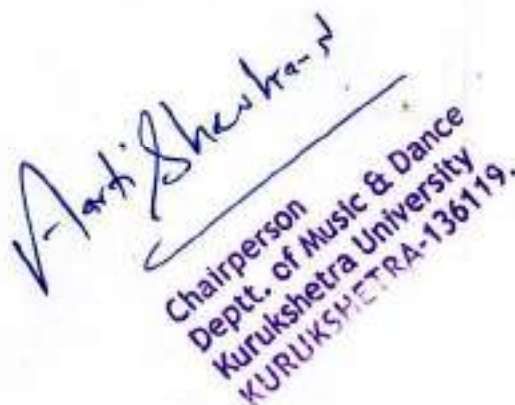 Aarti
Chairperson
Deptt. of Music & Dance
Kurukshetra University
KURUKSHETRA-136119.